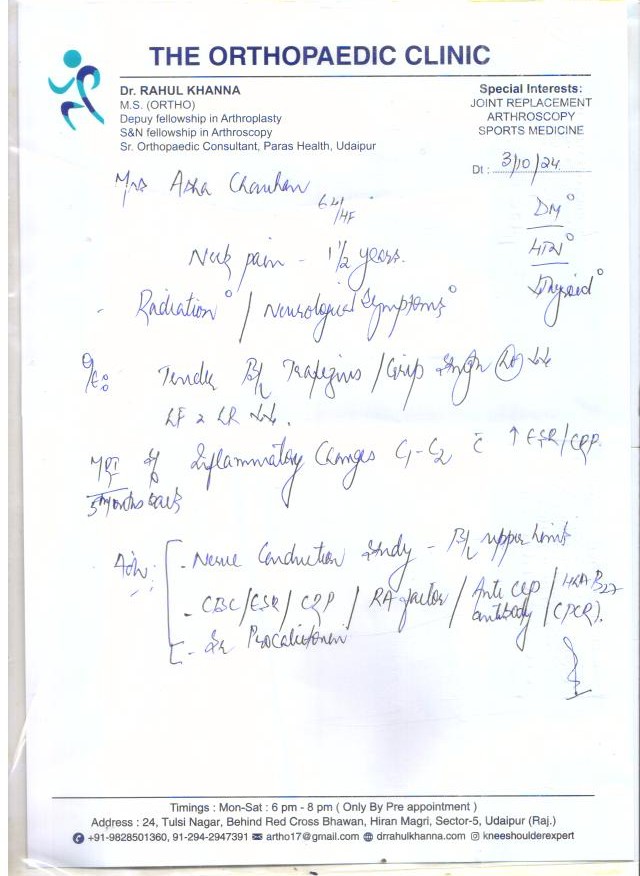 THE ORTHOPAEDIC CLINIC
Dr. RAHUL KHANNA
M.S. (ORTHO)
Depuy fellowship in Arthroplasty
S&N fellowship in Arthroscopy
Sr. Orthopaedic Consultant, Paras Health, Udaipur
Special Interests:
JOINT REPLACEMENT
ARTHROSCOPY
SPORTS MEDICINE
Dt : 3/10/24
Mrs Asha Chauhan
DM°
HTN°
Thyroid°
Neck pain - 1 1/2 years.
- Radiation° / Neurological Symptoms°
O/E: Tender B/L Trapezius / Grip
MRI Inflammatory Changes C1-C2 c̄ ↑ ESR/CRP
5 months back
Adv: - Nerve Conduction Study - B/L upper limb
- CBC/ESR/CRP / RA factor / Anti CCP antibody / HLA B27 (PCR).
- Sr Procalcitonin
Timings : Mon-Sat : 6 pm - 8 pm ( Only By Pre appointment )
Address : 24, Tulsi Nagar, Behind Red Cross Bhawan, Hiran Magri, Sector-5, Udaipur (Raj.)
+91-9828501360, 91-294-2947391 artho17@gmail.com drrahulkhanna.com kneeshoulderexpert